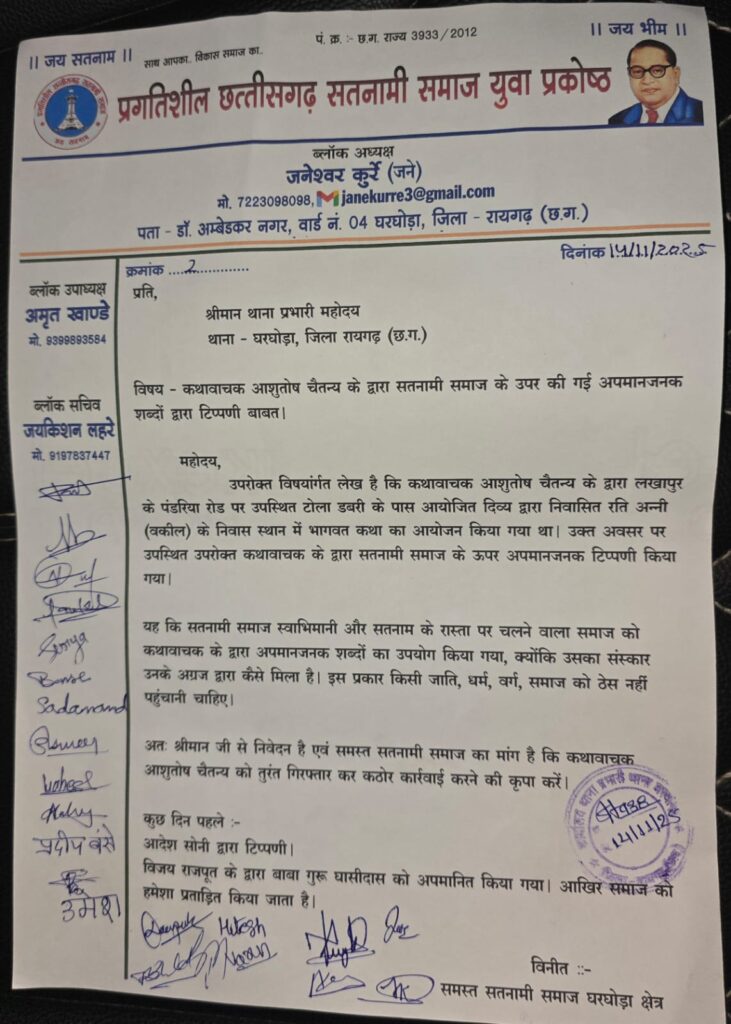 || जय सतनाम ||
साथ आपका.. विकास समाज का..
पं. क्र. :- छ.ग. राज्य 3933 / 2012
|| जय भीम ||
प्रगतिशील छत्तीसगढ़ सतनामी समाज युवा प्रकोष्ठ
ब्लॉक अध्यक्ष
जनेश्वर कुर्रे (जने)
मो. 7223098098, janekurre3@gmail.com
पता - डॉ. अम्बेडकर नगर, वार्ड नं. 04 घरघोड़ा, जिला - रायगढ़ (छ.ग.)
क्रमांक ....2.............
दिनांक 14/11/2025
ब्लॉक उपाध्यक्ष
अमृत खाण्डे
मो. 9399893584
ब्लॉक सचिव
जयकिशन लहरे
मो. 9197837447
प्रति,
श्रीमान थाना प्रभारी महोदय
थाना - घरघोड़ा, जिला रायगढ़ (छ.ग.)
विषय - कथावाचक आशुतोष चैतन्य के द्वारा सतनामी समाज के उपर की गई अपमानजनक
शब्दों द्वारा टिप्पणी बाबत।
महोदय,
उपरोक्त विषयांर्गत लेख है कि कथावाचक आशुतोष चैतन्य के द्वारा लखापुर
के पंडरिया रोड पर उपस्थित टोला डबरी के पास आयोजित दिव्य द्वारा निवासित रति अन्नी
(वकील) के निवास स्थान में भागवत कथा का आयोजन किया गया था। उक्त अवसर पर
उपस्थित उपरोक्त कथावाचक के द्वारा सतनामी समाज के ऊपर अपमानजनक टिप्पणी किया
गया।
यह कि सतनामी समाज स्वाभिमानी और सतनाम के रास्ता पर चलने वाला समाज को
कथावाचक के द्वारा अपमानजनक शब्दों का उपयोग किया गया, क्योंकि उसका संस्कार
उनके अग्रज द्वारा कैसे मिला है। इस प्रकार किसी जाति, धर्म, वर्ग, समाज को ठेस नहीं
पहुंचानी चाहिए।
अतः श्रीमान जी से निवेदन है एवं समस्त सतनामी समाज का मांग है कि कथावाचक
आशुतोष चैतन्य को तुरंत गिरफ्तार कर कठोर कार्रवाई करने की कृपा करें।
14/11/25
कुछ दिन पहले :-
आदेश सोनी द्वारा टिप्पणी।
विजय राजपूत के द्वारा बाबा गुरू घासीदास को अपमानित किया गया। आखिर समाज को
हमेशा प्रताड़ित किया जाता है।
Sadanand
प्रदीप बंसे
उमेश
Hitesh
विनीत ::-
समस्त सतनामी समाज घरघोड़ा क्षेत्र